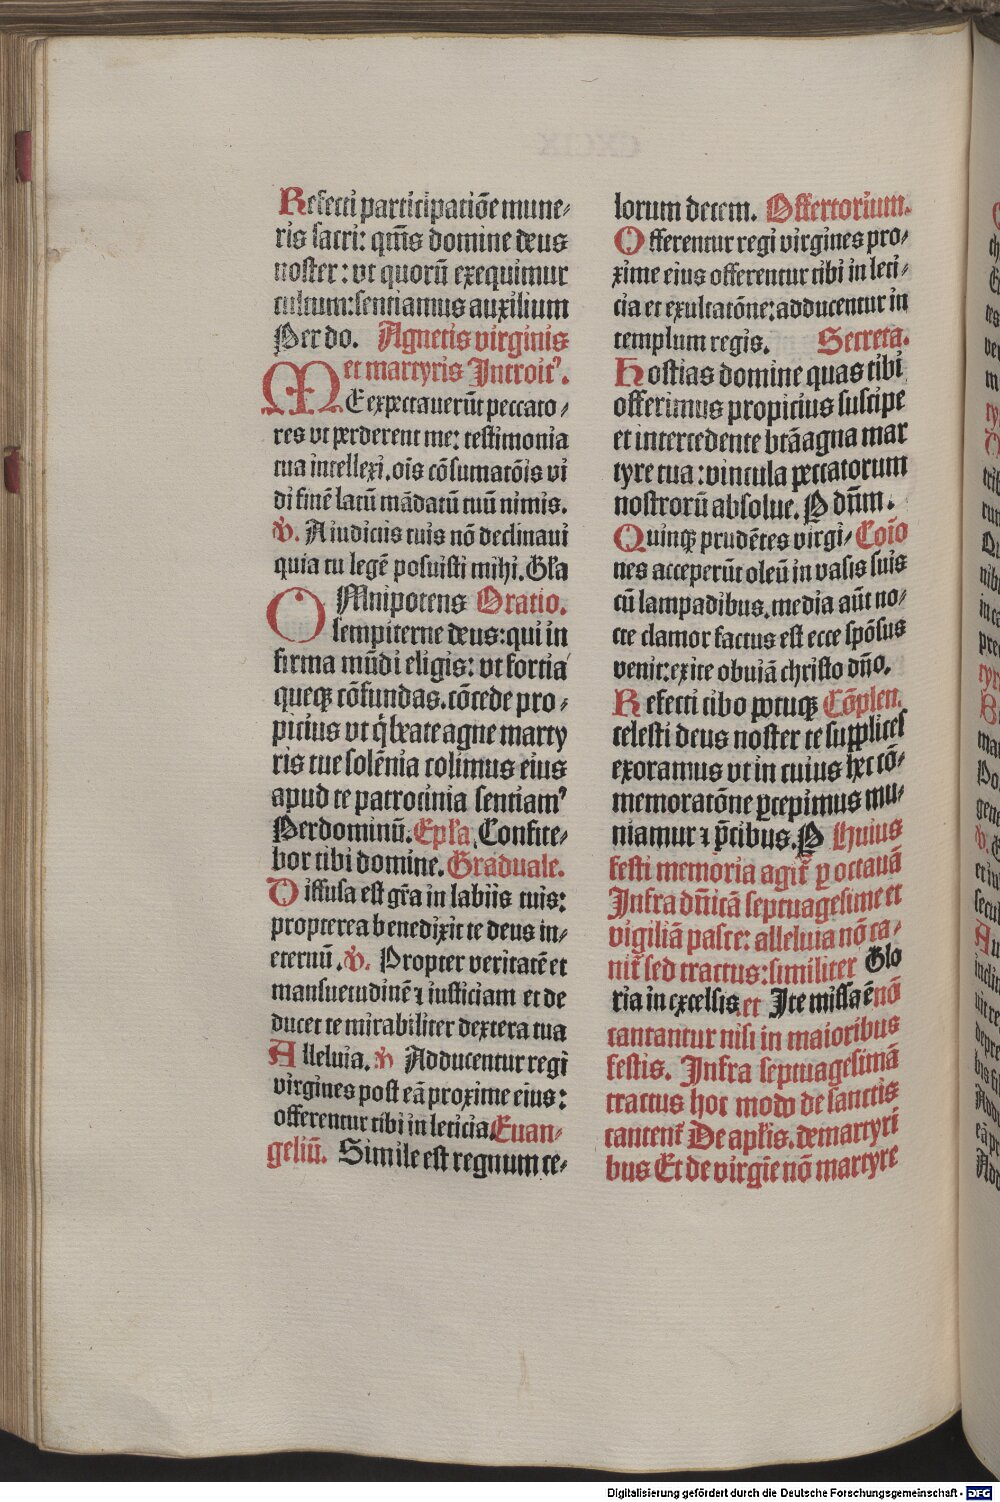 Refecti participatiõe mune⸗
ris sacri: qm̃s domine deus
noster: vt quorũ exequimur
cultum: sentiamus auxilium
Per do. Agnetis virginis
et martyris Introit⁹.
ME expectauerũt peccato⸗
res vt perderent me: testimonia
tua intellexi. oĩs cõsumatõis vi
di finẽ latũ mãdatũ tuũ nimis.
℣. A iudiciis tuis nõ declinaui
quia tu legẽ posuisti mihi. Gl'a
OMnipotens Oratio.
sempiterne deus: qui in
firma mũdi eligis: vt fortia
queqꝫ cõfundas. cõcede pro⸗
picius vt q̇ beate agne marty
ris tue solẽnia colimus eius
apud te patrocinia sentiam⁹
Per dominũ. Epl'a Confite⸗
bor tibi domine. Graduale.
Diffusa est gr̃a in labiis tuis:
propterea benedixit te deus in⸗
eternũ. ℣. Propter veritatẽ et
mansuetudinẽ ⁊ iusticiam et de
ducet te mirabiliter dextera tua
Alleluia. ℣ Adducentur regi
virgines post eã proxime eius:
offerentur tibi in leticia. Euan⸗
geliũ. Simile est regnum ce⸗
lorum decem. Offertorium.
Offerentur regi virgines pro⸗
xime eius offerentur tibi in leti⸗
cia et exultatõne: adducentur in
templum regis. Secreta.
Hostias domine quas tibi
offerimus propicius suscipe
et intercedente btã agna mar
tyre tua: vincula peccatorum
nostrorũ absolue. P dñm.
Quinqꝫ prudẽtes virgi⸗ Coĩo
nes acceperũt oleũ in vasis suis
cũ lampadibus. media aũt no⸗
cte clamor factus est ecce spõsus
venit: exite obuiã christo dño.
Refecti cibo potuqꝫ Cõplen.
celesti deus noster te supplices
exoramus vt in cuius hec cõ⸗
memoratõne ꝑcepimus mu⸗
niamur ⁊ p̃cibus. P Huius
festi memoria agit̃ ꝑ octauã
Infra dñicã septuagesime et
vigiliã pasce: alleluia nõ ca⸗
nit̃ sed tractus: similiter Glo
ria in excelsis et Ite missa ẽ nõ
cantantur nisi in maioribus
festis. Infra septuagesimã
tractus hoc modo de sanctis
cantent̃ De apl'is. de martyri
bus Et de virgĩe nõ martyre
CXCIX
Digitalisierung gefördert durch die Deutsche Forschungsgemeinschaft - DFG